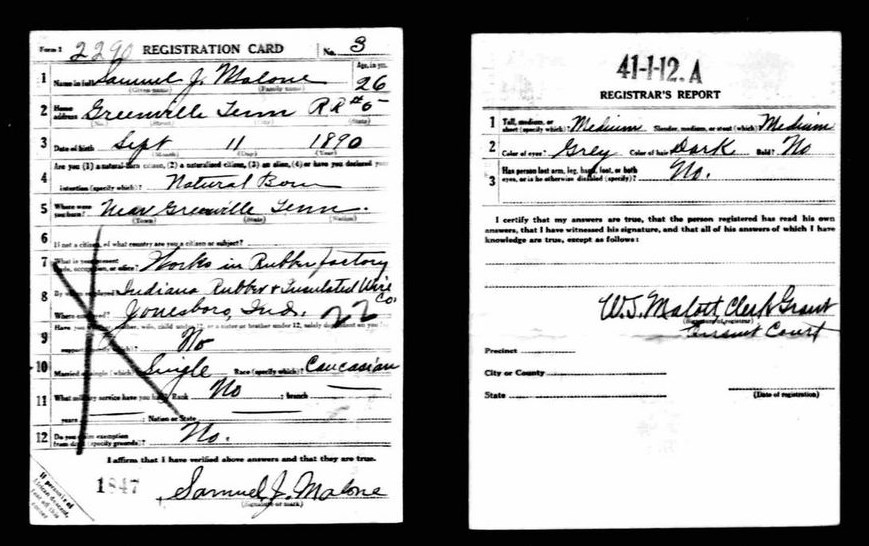 Form 1 2290 REGISTRATION CARD No. 3
1 Name in full Samuel J. Malone Age, in yrs. 26
(Given name) (Family name)
2 Home address Greenville Tenn RR #5
(No.) (Street) (City) (State)
3 Date of birth Sept 11 1890
(Month) (Day) (Year)
4 Are you (1) a natural-born citizen, (2) a naturalized citizen, (3) an alien, (4) or have you declared your
intention (specify which)? Natural Born
5 Where were you born? Near Greenville Tenn.
(Town) (State) (Nation)
6 If not a citizen, of what country are you a citizen or subject?
7 What is your present trade, occupation, or office? Works in Rubber factory
8 By whom employed? Indiana Rubber & Insulated Wire Co.
Where employed? Jonesboro, Ind. 22
9 Have you a father, mother, wife, child under 12, or a sister or brother under 12, solely dependent on you for
support (specify which)? No
10 Married or single (which)? Single Race (specify which)? Caucasian
11 What military service have you had? Rank No ; branch
years ; Nation or State
12 Do you claim exemption from draft (specify grounds)? No.
I affirm that I have verified above answers and that they are true.
1847 Samuel J. Malone
(Signature or mark)
If person is of African descent, tear off this corner
41-1-12. A
REGISTRAR'S REPORT
1 Tall, medium, or short (specify which)? Medium Slender, medium, or stout (which)? Medium
2 Color of eyes? Grey Color of hair? Dark Bald? No
3 Has person lost arm, leg, hand, foot, or both eyes, or is he otherwise disabled (specify)? No.
I certify that my answers are true, that the person registered has read his own
answers, that I have witnessed his signature, and that all of his answers of which I have
knowledge are true, except as follows:
W.S. Malott, Clerk Grant
(Signature of registrar)
Circuit Court
Precinct
City or County
State
(Date of registration)